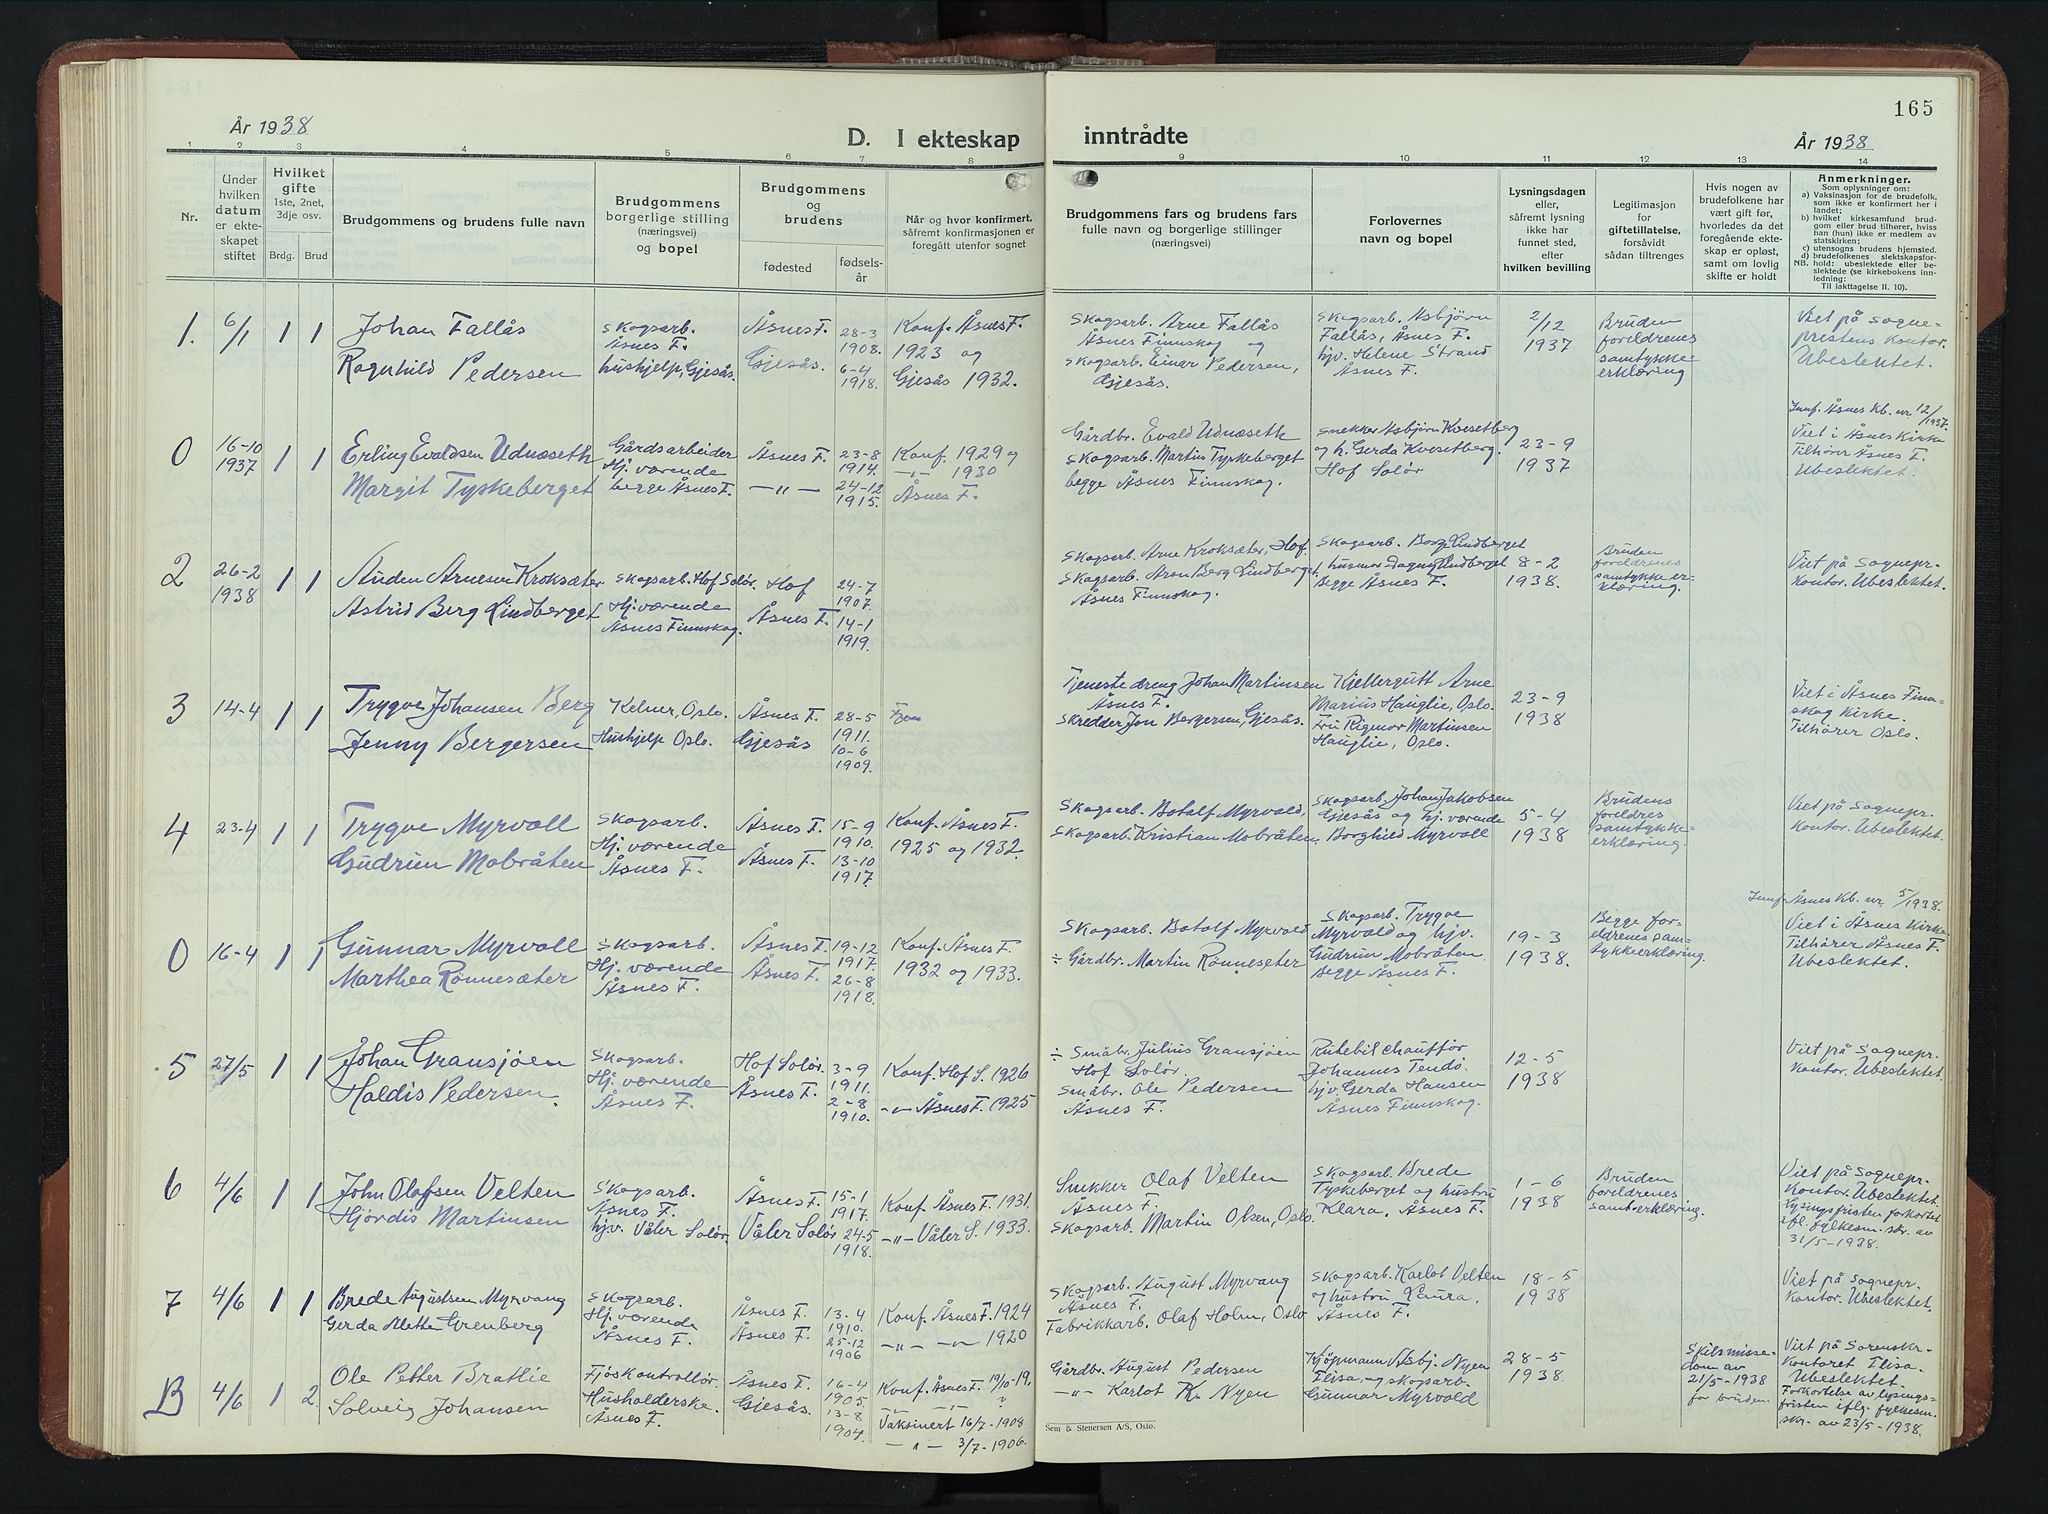 165
År 1938
D. I ekteskap inntrådte
År 1938
1 2 3 4 5 6 7 8 9 10 11 12 13 14
Nr.
Under hvilken datum er ekteskapet stiftet
Hvilket gifte 1ste, 2net, 3dje osv.
Brdg. Brud
Brudgommens og brudens fulle navn
Brudgommens borgerlige stilling (næringsvei) og bopel
Brudgommens og brudens
fødested
fødselsår
Når og hvor konfirmert, såfremt konfirmasjonen er foregått utenfor sognet
Brudgommens fars og brudens fars fulle navn og borgerlige stillinger (næringsvei)
Forlovernes navn og bopel
Lysningsdagen eller, såfremt lysning ikke har funnet sted, efter hvilken bevilling
Legitimasjon for giftetillatelse, forsåvidt sådan tiltrenges
Hvis nogen av brudefolkene har vært gift før, hvorledes da det foregående ekteskap er opløst, samt om lovlig skifte er holdt
Anmerkninger.
Som oplysninger om:
a) Vaksinasjon for de brudefolk, som ikke er konfirmert her i landet;
b) hvilket kirkesamfund brudgom eller brud tilhører, hviss han (hun) ikke er medlem av statskirken;
c) utensogns brudens hjemsted.
d) brudefolkenes slektskapsforhold: ubeslektede eller beslektede (se kirkebokens innledning:
NB.
Til iakttagelse II. 10).
1. 6/1 1 1
Johan Fallås
Ragnhild Pedersen
Skogsarb.
Åsnes F.
hushjelp, Gjesås.
Åsnes F.
Gjesås.
28-3
1908.
6-4
1918.
Konf. Åsnes F.
1923 og
Gjesås 1932.
Skogsarb. Arne Fallås
Åsnes Finnskog og
Skogsarb. Einar Pedersen,
Gjesås.
Skogsarb. Asbjørn
Fallås, Åsnes F.
hjv. Helene Strand
Åsnes F.
2/12
1937
Bruden
foreldrenes
samtykke-
erklæring
Viet på Sogne-
prestens kontor.
Ubeslektet.
0 16-10 1937 1 1
Erling Evaldsen Udnæseth
Margit Tyskeberget
Gårdsarbeider
Hj. værende
begge Åsnes F.
Åsnes F.
—"—
23-8
1914.
24-12
1915.
Konf. 1929 og
—"— 1930
Åsnes F.
Gårdbr. Evald Udnæseth
Skogsarb. Martin Tyskeberget
begge Åsnes Finnskog.
Snekker Asbjørn Kvesetberg
og h. Gerda Kvesetberg.
Hof Solør
23-9
1937
Jmf. Åsnes Kb. nr 12/1937.
Viet i Åsnes Kirke
Tilhører Åsnes F.
Ubeslektet.
2 26-2 1938 1 1
Auden Arnesen Kroksæter
Astrid Berg Lindberget
Skogsarb. Hof Solør.
Hj. værende
Åsnes Finnskog.
Hof
Åsnes F.
24-7
1907.
14-1
1919.
Skogsarb. Arne Kroksæter, Hof.
Skogsarb. Aron Berg Lindberget,
Åsnes Finnskog.
Skogsarb. Borg Lindberget
husmor Dagny Lindberget
Begge Åsnes F.
8-2
1938.
Bruden
foreldrenes
samtykke er-
klæring.
Viet på Sognepr.
Kontor. Ubeslektet.
3 14-4 1 1
Trygve Johansen Berg
Jenny Bergersen
Kelner, Oslo.
Hushjelp Oslo.
Åsnes F.
Gjesås
28-5
1911.
10-6
1909.
Tjenestedreng Johan Martinsen
Åsnes F.
Skredder Jon Bergersen, Gjesås.
Kjellergutt Arne
Marius Hauglie, Oslo.
Fru Rigmor Martinsen
Hauglie, Oslo.
23-9
1938
Viet i Åsnes Finn-
skog Kirke.
Tilhører Oslo.
4 23-4 1 1
Trygve Myrvoll
Gudrun Mobråten
Skogsarb.
Hj. værende
Åsnes F.
Åsnes F.
Åsnes F.
15-9
1910.
13-10
1917.
Konf. Åsnes F.
1925 og 1932.
Skogsarb. Botolf Myrvold,
Skogsarb. Kristian Mobråten
Skogsarb. Johan Jakobsen
Gjesås og hj. værende
Borghild Myrvoll
5-4
1938
Brudens
foreldres
samtykke-
erklæring.
Viet på Sognepr.
Kontor. Ubeslektet.
0 16-4 1 1
Gunnar Myrvoll
Marthea Rønnesæter
Skogsarb.
Hj. værende
Åsnes F.
Åsnes F.
Åsnes F.
19-12
1917.
26-8
1918.
Konf. Åsnes F.
1932 og 1933.
Skogsarb. Botolf Myrvold
÷ Gårdbr. Martin Rønneseter
Skogsarb. Trygve
Myrvold og hjv.
Gudrun Mobråten.
Begge Åsnes F.
19-3
1938.
Begge for-
eldrenes sam-
tykkeerklæring.
Jmf. Åsnes Kb. nr 5/1938.
Viet i Åsnes Kirke
Tilhører Åsnes F.
Ubeslektet.
5 27/5 1 1
Johan Gransjøen
Haldis Pedersen.
Skogsarb.
Hj. værende
Åsnes F.
Hof Solør.
Åsnes F.
3-9
1911.
2-8
1910.
Konf. Hof S. 1926
—"— Åsnes F. 1925
÷ Småbr. Julius Gransjøen
Hof Solør.
Småbr. Ole Pedersen
Åsnes F.
Rutebilchauffør
Johannes Tendø.
hjv. Gerda Hansen
Åsnes Finnskog.
12-5
1938
Viet på Sognepr.
Kontor. Ubeslektet.
6 4/6 1 1
John Olafsen Velten
Hjørdis Martinsen
Skogsarb.
Åsnes F.
hjv. Våler Solør.
Åsnes F.
Våler Solør
15-1
1917.
24-5
1918.
Konf. Åsnes F. 1931.
—"— Våler S. 1933.
Snekker Olaf Velten
Åsnes F.
Skogsarb. Martin Olsen, Oslo.
Skogsarb. Brede
Tyskeberget og hustru
Klara, Åsnes F.
1-6
1938
Bruden
foreldrenes
samt.erklæring.
Viet på Sognepr.
Kontor. Ubeslektet.
Lysingsfristen forkortet
ifl. fylkesm. skr. av
31/5-1938.
7 4/6 1 1
Brede Augustsen Myrvang
Gerda Mette Grenberg
Skogsarb.
Hj. værende
Åsnes F.
Åsnes F.
Åsnes F.
13-4
1910.
25-12
1906
Konf. Åsnes F. 1924
—"— —"— 1920
Skogsarb. August Myrvang
Åsnes F.
Fabrikkarb. Olaf Holm, Oslo
Skogsarb. Karlot Velten
og hustru Laura,
Åsnes F.
18-5
1938
Viet på Sognepr.
Kontor. Ubeslektet.
B 4/6 1 2.
Ole Petter Bratlie
Solveig Johansen
Fjøskontrollør.
Husholderske.
Åsnes F.
Åsnes F.
Gjesås.
16-4
1905.
13-8
1904.
Konf. Åsnes F. 19/10-19.
—"— ?
Vaksinert 16/7-1908
—"— 3/7-1906.
Gårdbr. August Pedersen
—"— Karlot K. Nyen
Kjøpmann Asbj. Nyen
Flisa, og skogsarb.
Gunnar Myrvold
28-5
1938.
Skilsmisse-
dom av
21/5-1938
for bruden.
Viet på Sorenskr.
Kontoret Flisa.
Ubeslektet.
Forkortelse av lysnings-
fristen iflg. fylkesm.
skr. av 23/5-1938.
Sem & Stenersen A/S, Oslo.